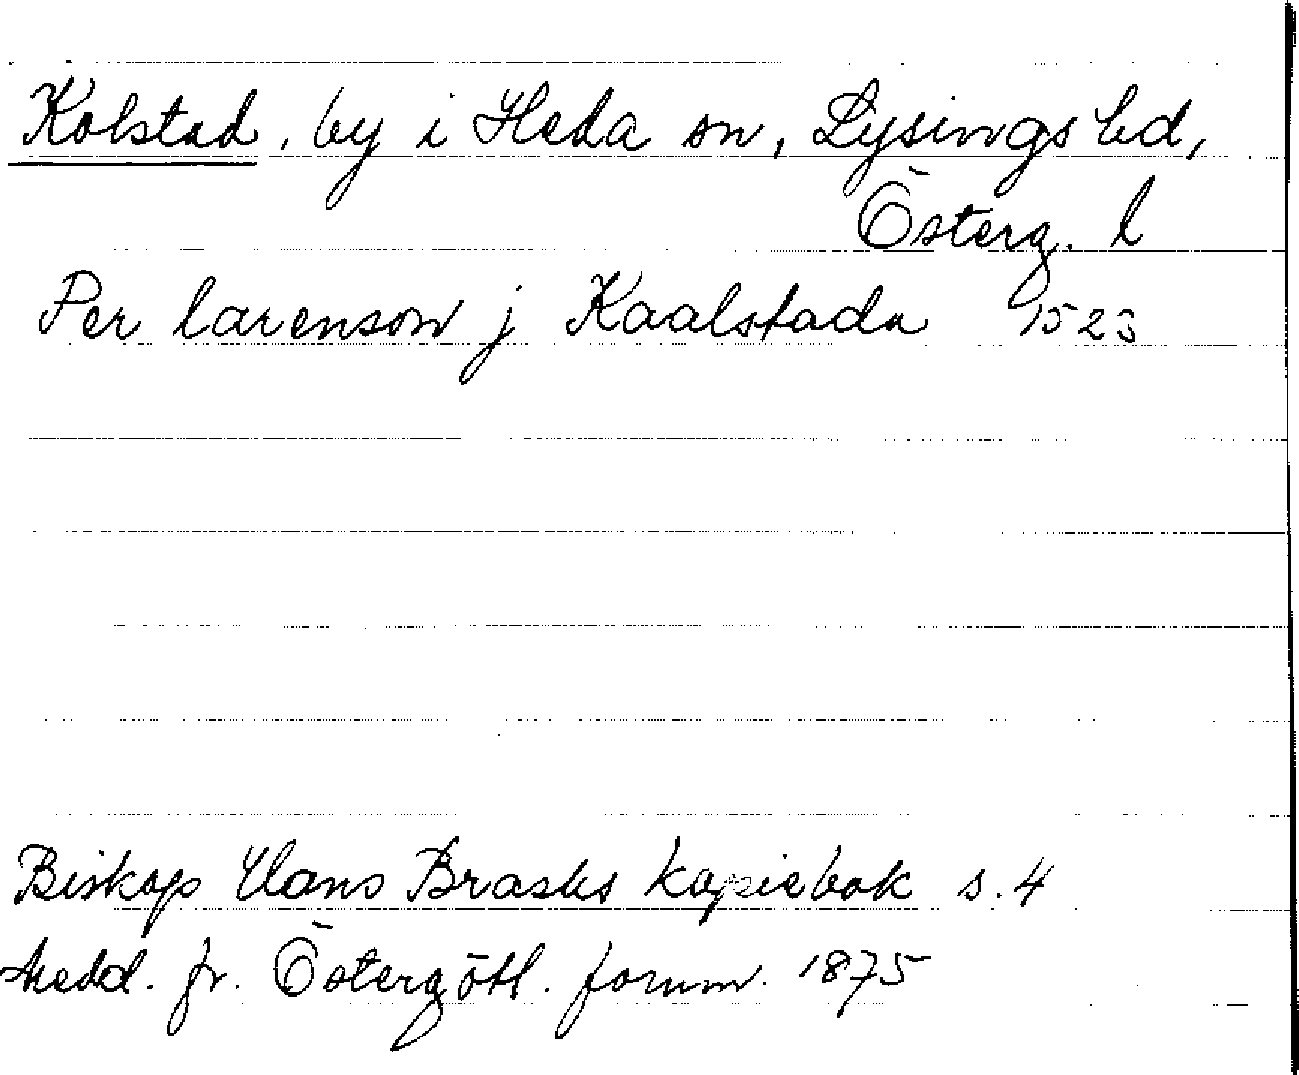 Kolstad, by i Heda sn, Lysings hd,
Österg. l
Per larenson j Kaalstada 1523
Biskop Hans Brasks kopiebok s. 4
Medd. fr. Östergötl. fornm. 1875